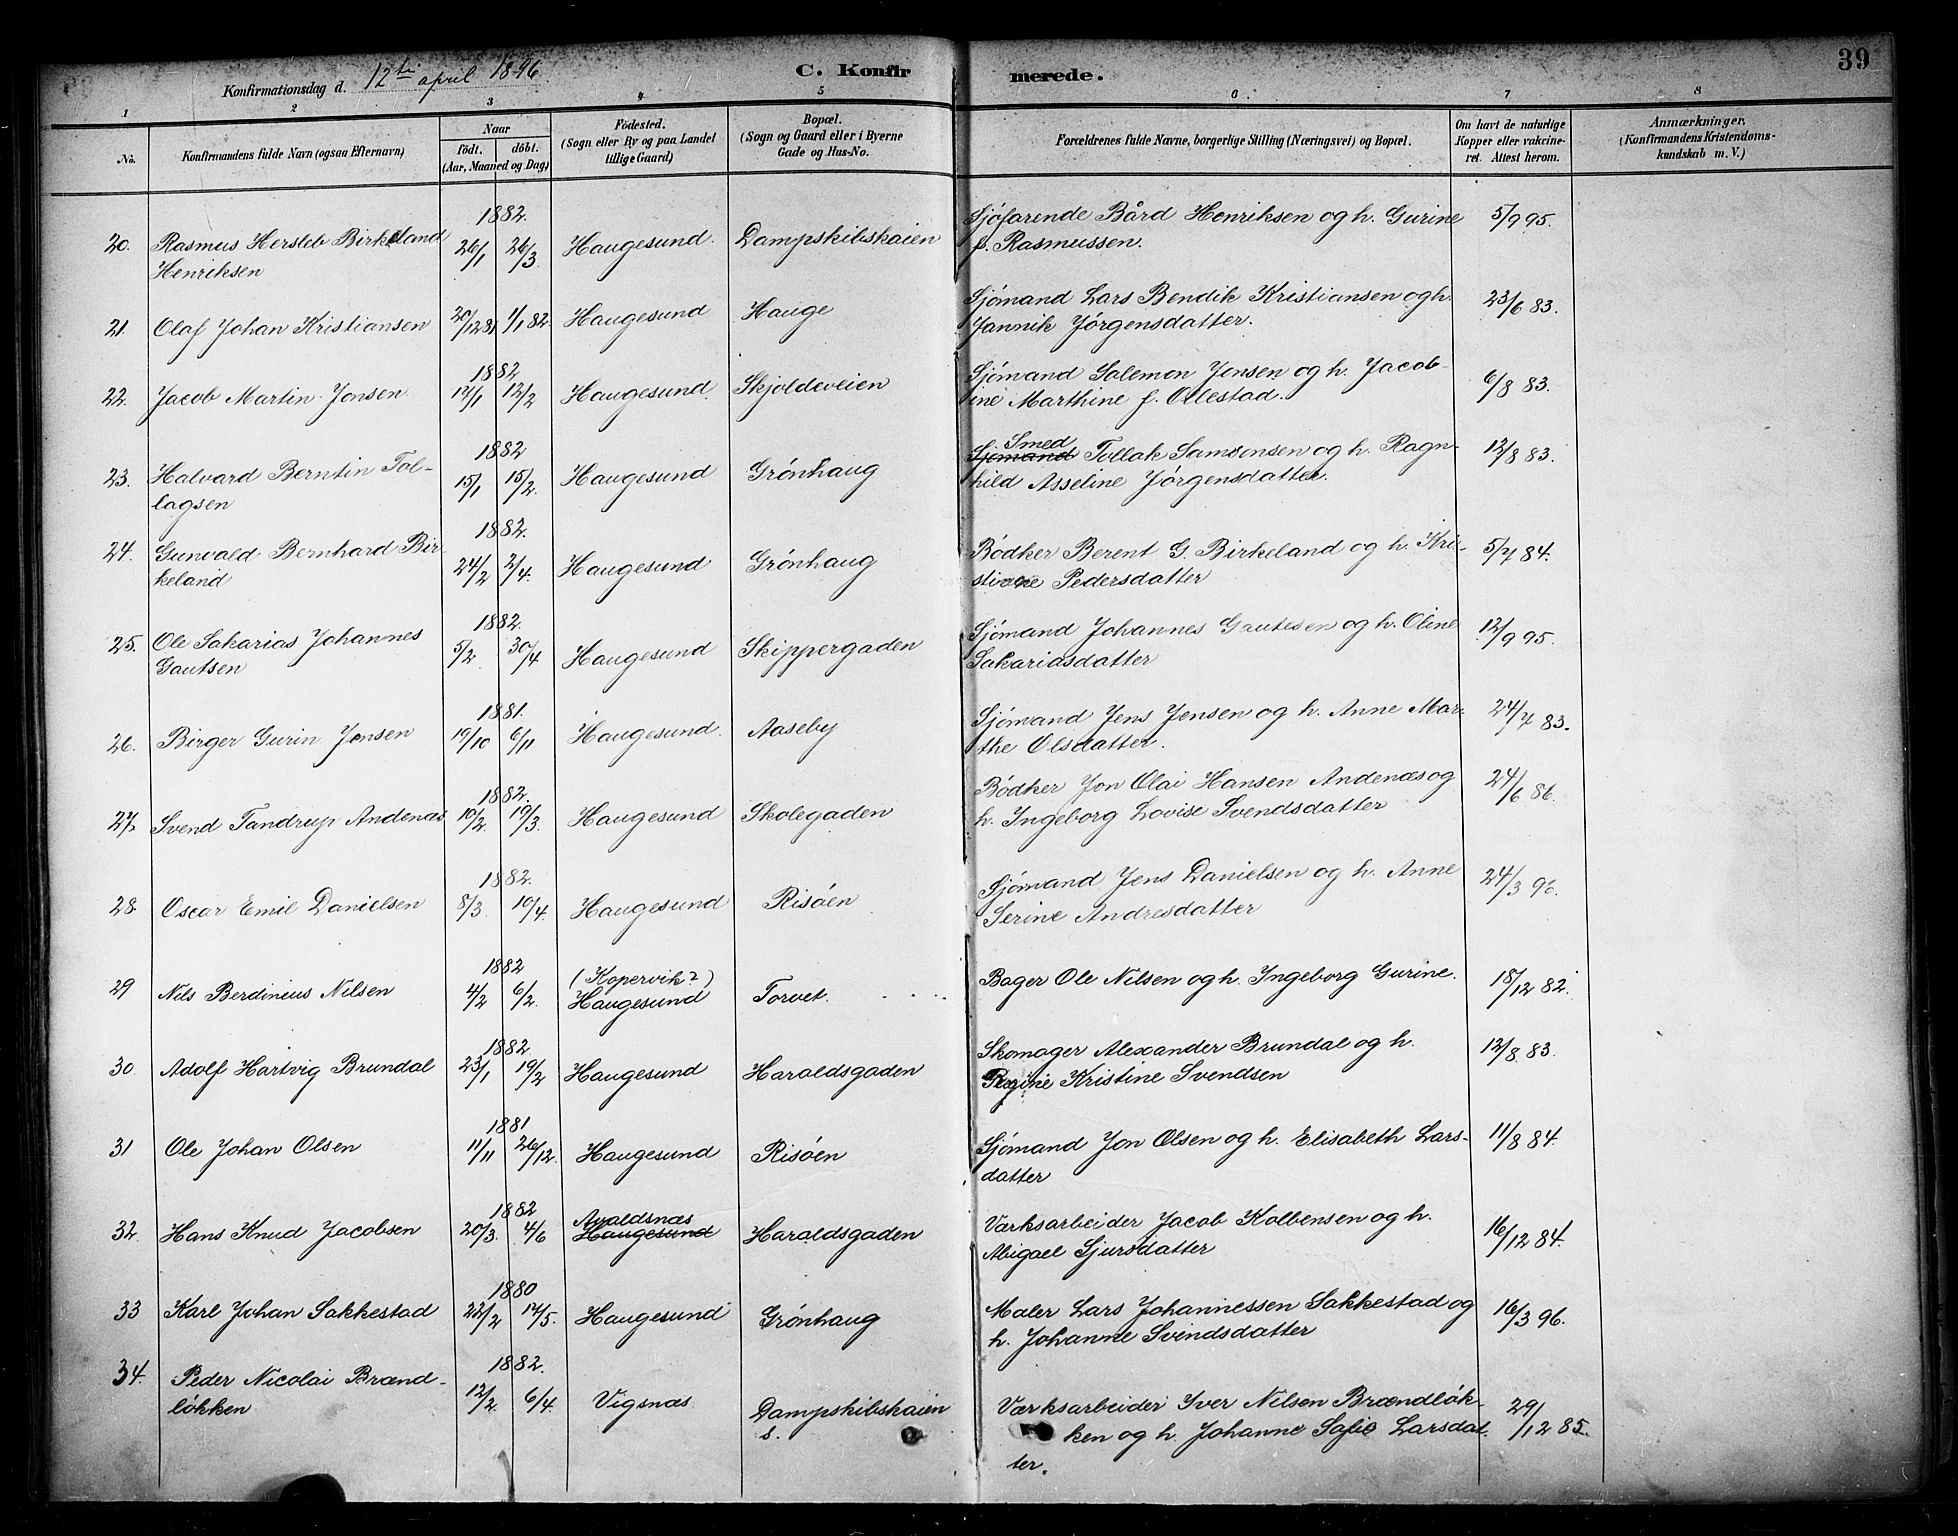 39
Konfirmationsdag d. 12te april 1896.
C. Konfirmerede.
1 2 3 4 5 6 7 8
No. Konfirmandens fulde Navn (ogsaa Efternavn) Naar födt. döbt. (Aar, Maaned og Dag) Födested. (Sogn eller By og paa Landet tillige Gaard) Bopæl. (Sogn og Gaard eller i Byerne Gade og Hus-No. Forældrenes fulde Navne, borgerlige Stilling (Næringsvei) og Bopæl. Om havt de naturlige Kopper eller vakcineret. Attest herom. Anmærkninger. (Konfirmandens Kristendomskundskab m. V.)
1882.
20. Rasmus Hersleb Birkeland 26/1 26/3. Haugesund. Dampskibskaien Sjøfarende Bård Henriksen og h. Gurine 5/9 95.
Henriksen f. Rasmussen.
21. Olaf Johan Kristiansen 20/12 81 1/1 82. Haugesund Hauge Sjømand Lars Bendik Kristiansen og h. 23/6 83.
Jannik Jørgensdatter.
1882
22. Jacob Martin Jonsen 12/1 12/2 Haugesund. Skjoldeveien Sjømand Salemon Jonsen og h. Jacob- 6/8 83.
ine Marthine f. Ollestad.
1882
Smed
23. Halvard Berntin Tol- 15/1 15/2. Haugesund Grønhaug Sjømand Tollak Samsonsen og h. Ragn- 12/8 83.
lagsen hild Asseline Jørgensdatter.
1882.
24. Gunvald Bernhard Bir- 24/2 2/4. Haugesund Grønhaug Bødker Berent G. Birkeland og h. Kri- 5/7 84.
keland stine Pedersdatter
1882.
25. Ole Sakarias Johannes 5/2. 30/4 Haugesund Skippergaden Sjømand Johannes Gautesen og h. Oline 12/9 95.
Gautsen Sakariasdatter
1881.
26. Birger Gurin Jensen 19/10 6/11 Haugesund. Aaseby Sjømand Jens Jensen og h. Anne Mar- 24/7 83.
the Olsdatter.
1882.
27. Svend Tandrup Andenæs 10/2. 19/3. Haugesund Skolegaden Bødker Jon Olai Hansen Andenæs og 24/6 86.
h. Ingeborg Lovise Svendsdatter
1882.
28. Oscar Emil Danielsen 8/3. 10/4. Haugesund Risøen Sjømand Jens Danielsen og h. Anne 24/3 96.
Serine Andresdatter
1882 (Kopervik?)
29 Nils Berdinius Nilsen 4/2 6/2. Haugesund Torvet. Bager Ole Nilsen og h. Ingeborg Gurine. 18/12 82.
1882
30 Adolf Hartvig Brundal 23/1 19/2 Haugesund Haraldsgaden Skomager Alexander Brundal og h. 12/8 83.
Regine Kristine Svendsen
1881
31 Ole Johan Olsen 11/11 26/12. Haugesund Risøen Sjømand Jon Olsen og h. Elisabeth Lars- 11/8 84.
datter
1882 Avaldsnæs
32. Hans Knud Jacobsen 20/3. 4/6 Haugesund Haraldsgaden Værksarbeider Jacob Kolbensen og h. 16/12 84.
Abigael Sjursdatter
1880
33 Karl Johan Sakkestad 22/2 17/5. Haugesund Grønhaug Maler Lars Johannessen Sakkestad og 16/3 96.
h. Johanne Svindsdatter
1882.
34. Peder Nicolai Brænd- 12/2. 6/4. Vigsnæs Dampskibskaien Værksarbeider Iver Nilsen Brændløk- 29/12 85.
løkken s. ken og h. Johanne Sofie Larsdat
ter.